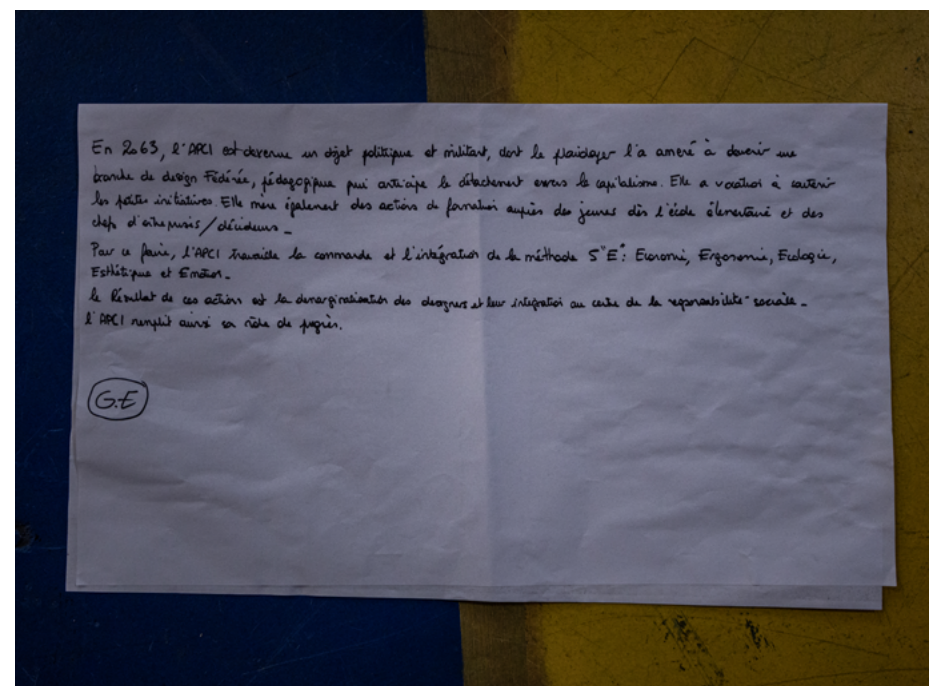 En 2063, l'APCI est devenue un objet politique et militant, dont le plaidoyer l'a amené à devenir une
branche de design Fédérée, pédagogique qui anticipe le détachement envers le capitalisme. Elle a vocation à soutenir
les petites initiatives. Elle mène également des actions de formation auprès des jeunes dès l'école élémentaire et des
chefs d'entreprises/décideurs_
Par ce faire, l'APCI travaille la commande et l'intégration de la méthode 5"E": Economie, Ergonomie, Ecologie,
Esthétique et Emotion_
le Résultat de ces actions est la demarginalisation des designers et leur integration au centre de la responsabilité sociale_
l'APCI remplit ainsi sa rôle de progrès.
G.E